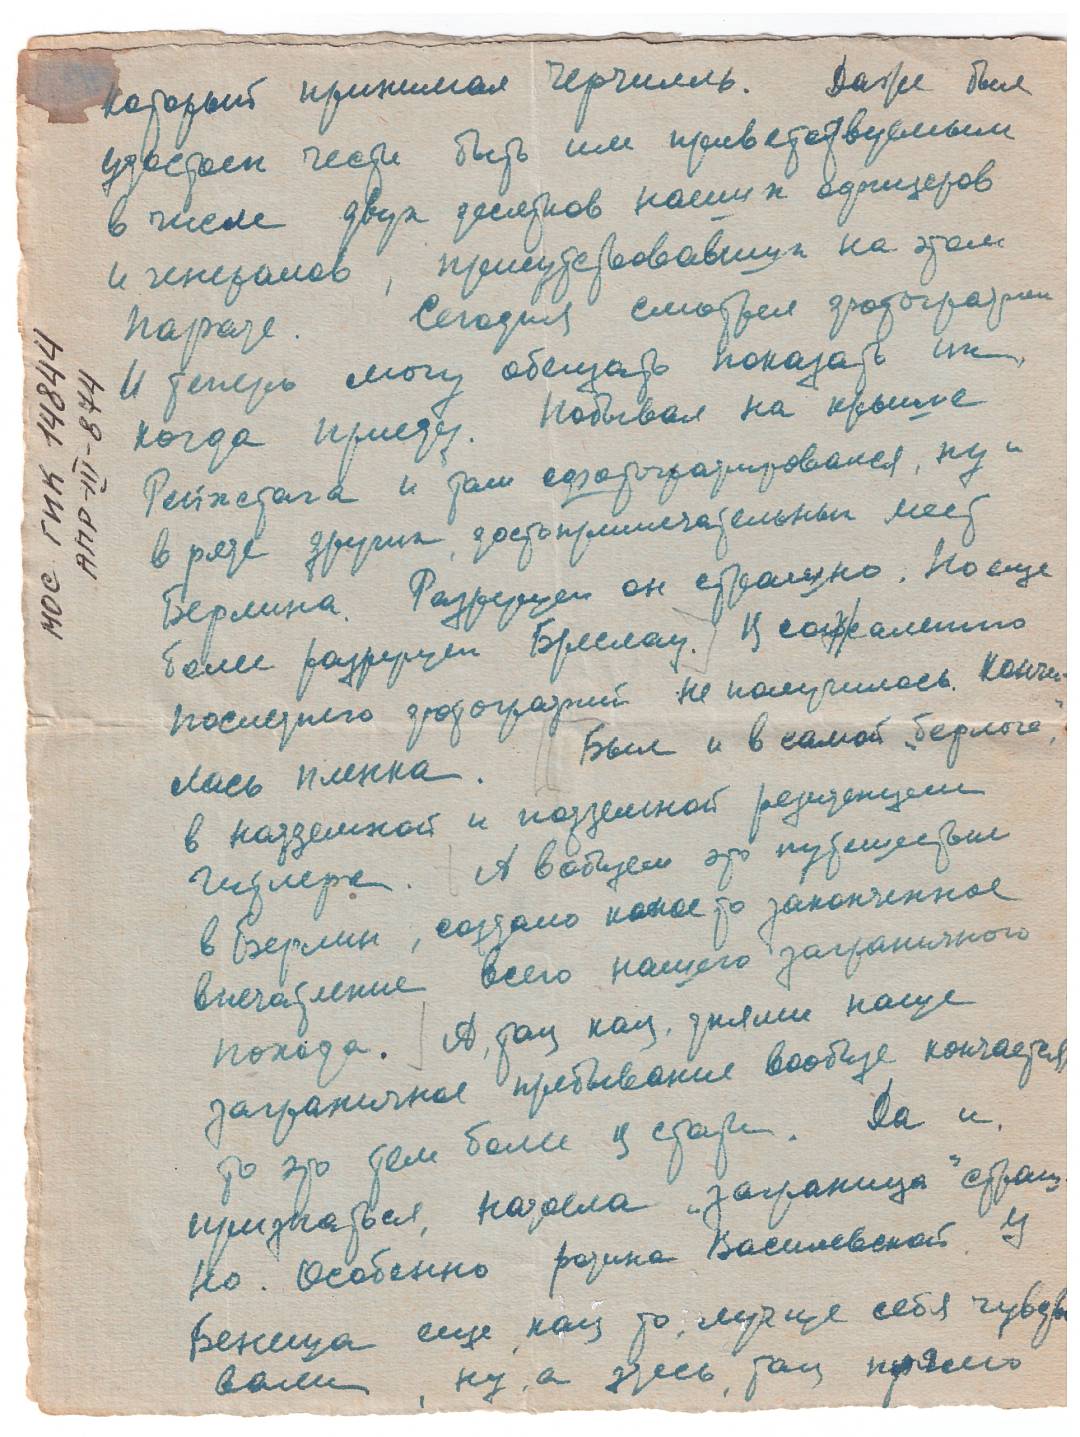 который принимал Черчилль. Даже был
удостоен чести быть им приветствуемым
в числе двух десятков наших офицеров
и генералов, присутствовавших на этом
параде. Сегодня смотрел фотографии
И теперь могу обещать показать их,
когда приеду. Побывал на крыше
Рейхстага и там сфотографировался, ну и
в ряде других, достопримечательных мест
Берлина. Разрушен он страшно. Но еще
более разрушен Бреслау. К сожалению
последнего фотографий не получилось. Кончи-
лась пленка. Был и в самой „берлоге",
в надземной и подземной резиденции
Гитлера. А в общем это путешествие
в Берлин, создало какое то законченное
впечатление всего нашего заграничного
похода. А, так как, днями наше
заграничное пребывание вообще кончается,
то это тем более к стати. Да и,
признаться, надоела „заграница" страш-
но. Особенно родина Василевской. У
Бенеша еще, как то, лучше себя чувство
вали, ну, а здесь, так прямо
МОС ГИК 14844
АМР-III-874